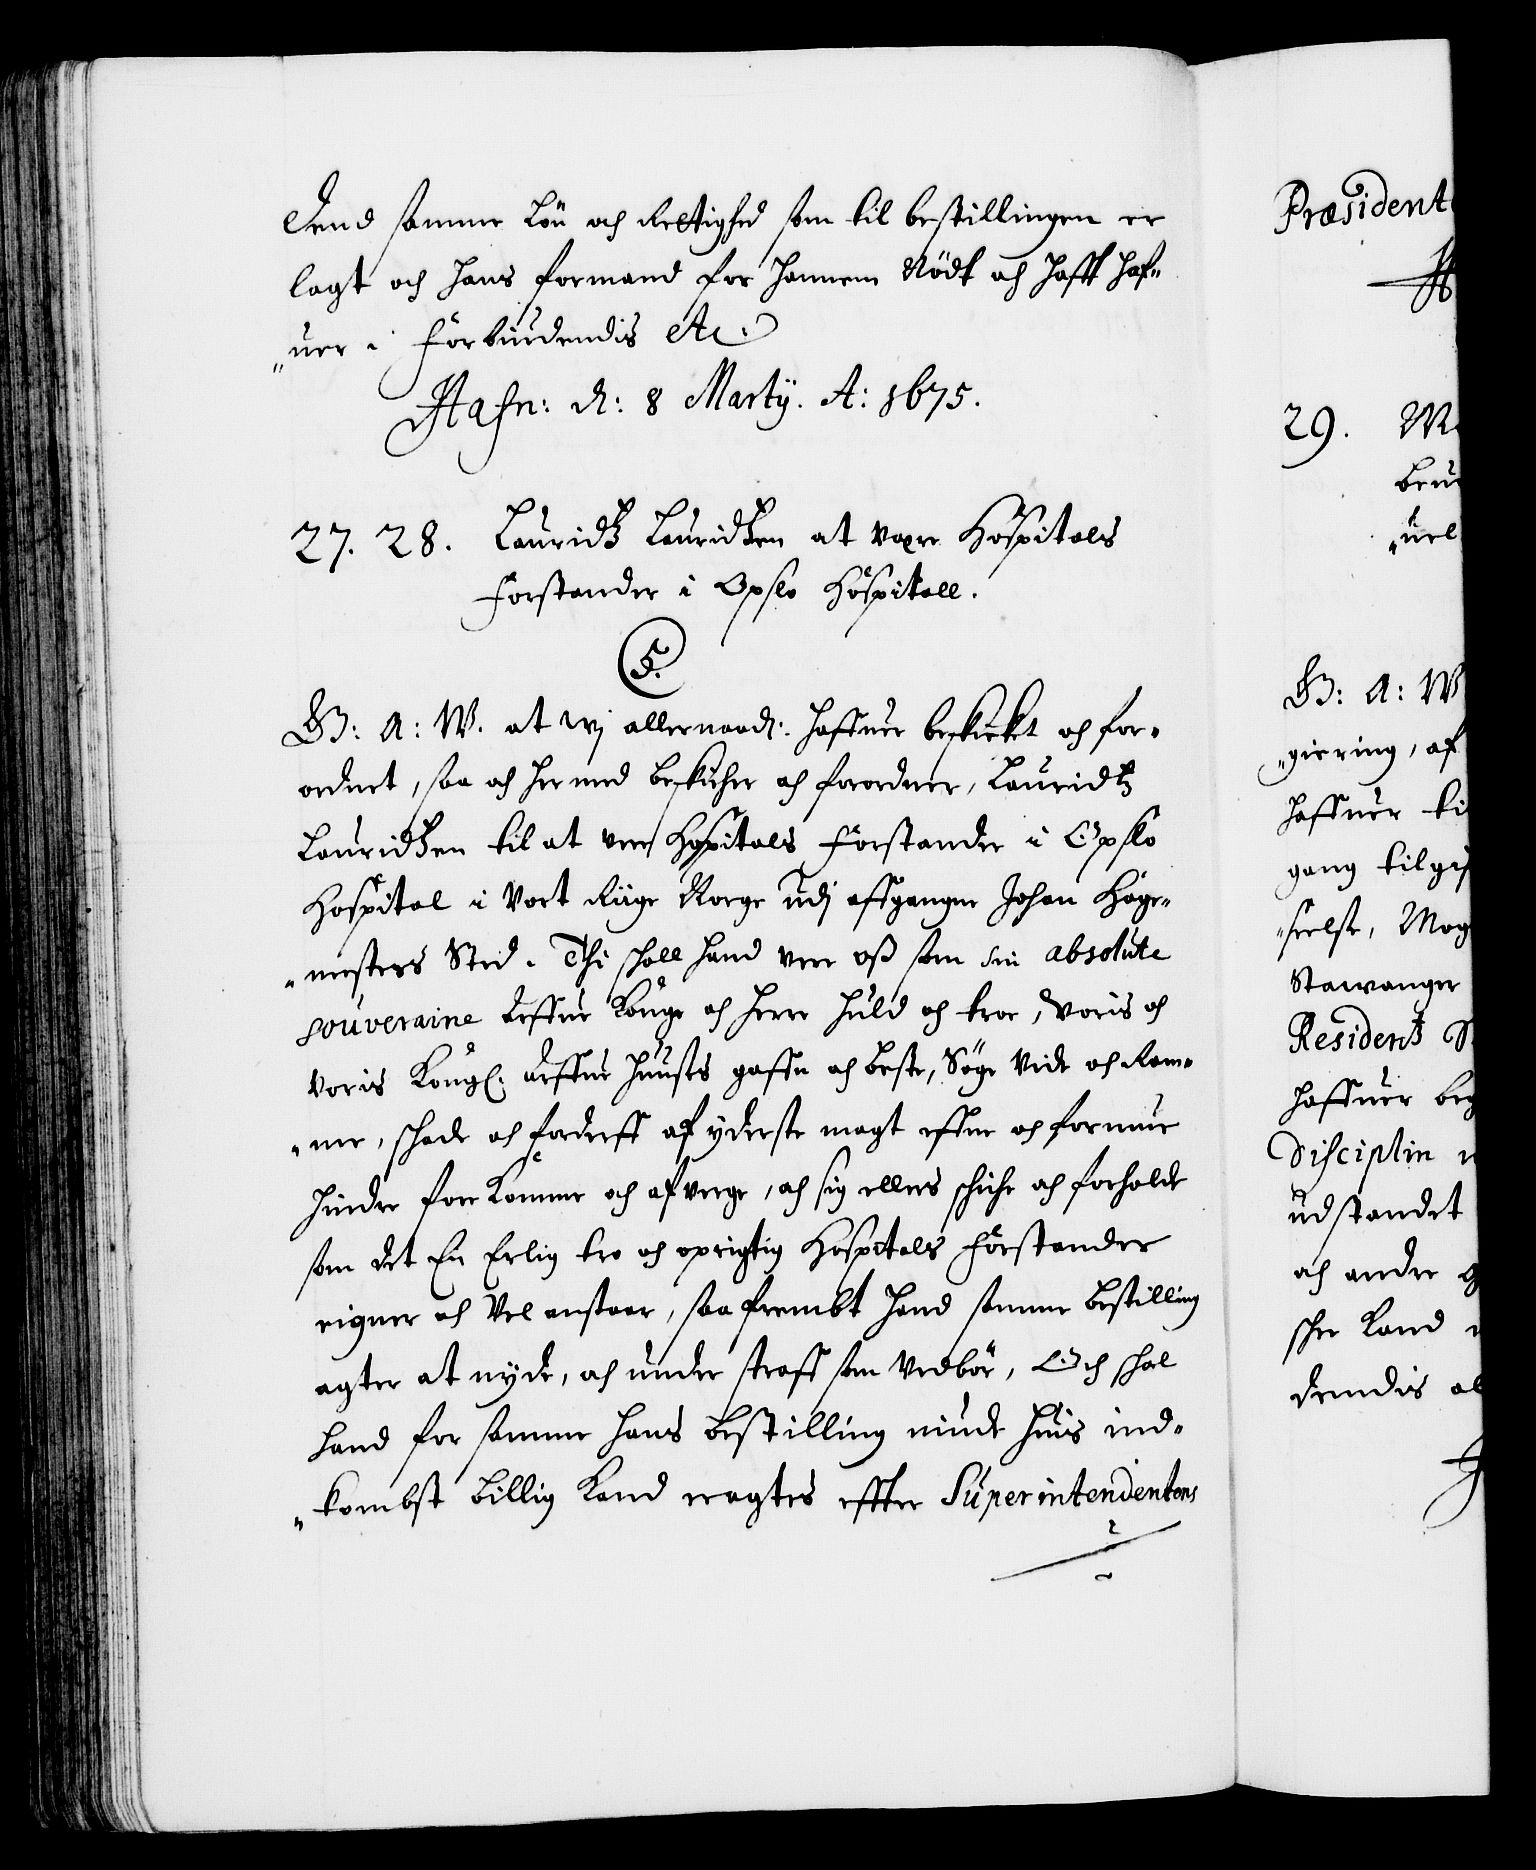 Dend samme Løn och Rettighed som til bestillingen er
lagt och hans formand for hannem Nødt och hafft haf„
„uer i Forbiudendis etc.
Hafn: d: 8 Martij. A: 1675.
27. 28. Lauridtz Lauridtzen at være Hospitals
Forstander i Opslo Hospitall.
5.
G: A: W. at wj allernaad: haffuer beskicket och for„
ordnet, saa och hermed beskicher och forordner, Lauridtz
Lauridtzen til at vere Hospitals Forstander i Opslo
Hospital i Vort Riige Norge udj affgangne Johan Høge„
„mesters Sted. Thi schall hand vere oss som sin absolute
souveraine Arffue Konge och Herre huld och troe, Voris och
Voris Kongl: Arffue Huusis gaffn och beste, Søge Vide och Ram„
„me, schade och forderff af yderste magt effne och formue
hindre forekomme och afverge, och sig ellers schiche och forholde
som det En Erlig tro och oprigtig Hospitals Forstander
eigner och Vel anstaar, saa frembt hand samme bestilling
agter at nyde, och under straff som Vedbør, Och schal
hand for samme hans bestilling niude huis ind„
„kombst billig kand eragtes effter Superintendentens
Præsident
29. M
beu
„uel
G: A: W
„giering, af
haffuer ti
gang tilgif
„selse, Mog
Stawanger
Residentz S
haffuer beg
Disciplin
udstandet
och andre
scher kand
dendis al